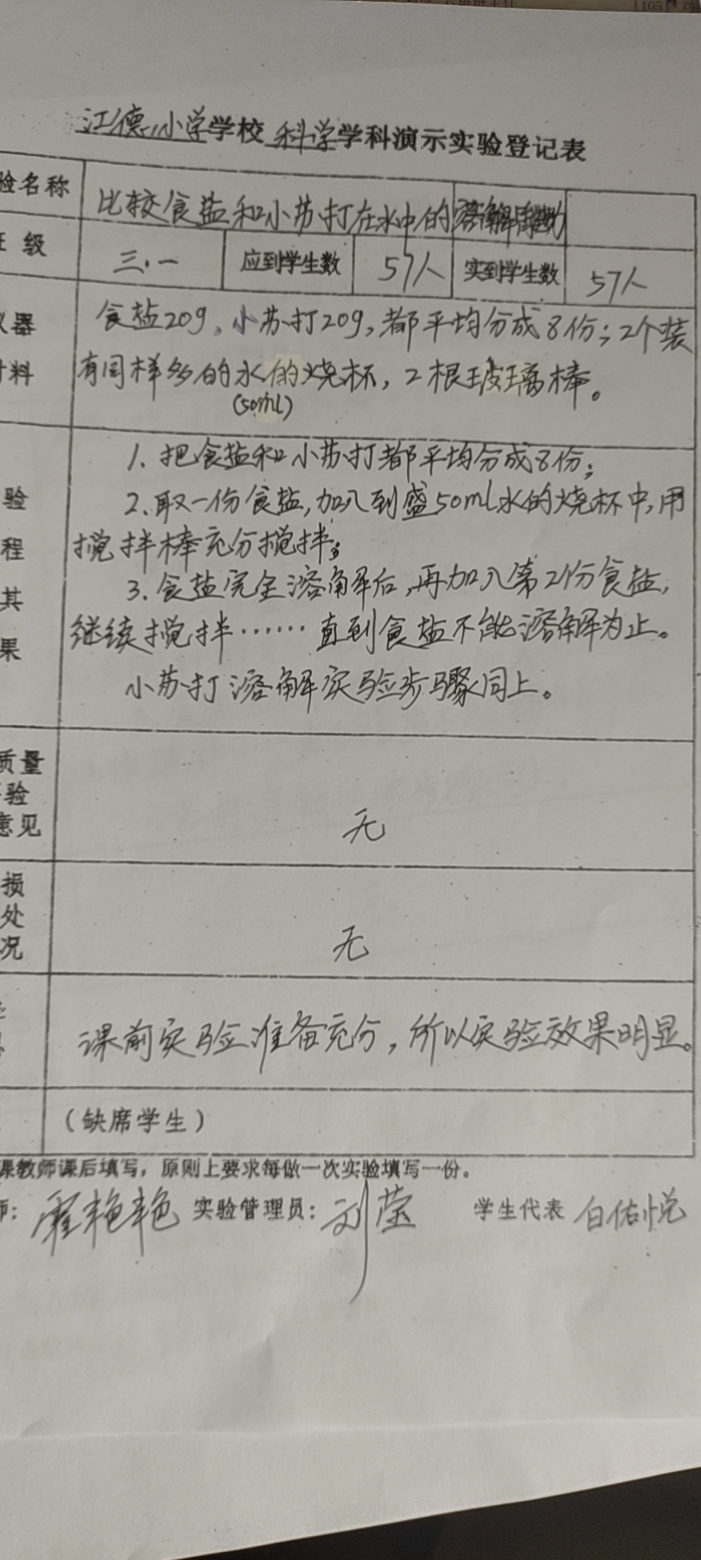 江德小学学校科学学科演示实验登记表
验名称 比较食盐和小苏打在水中的溶解能力
班 级 三.一 应到学生数 57人 实到学生数 57人
仪器 食盐20g,小苏打20g,都平均分成8份;2个装
材料 有同样多的水的烧杯,2根玻璃棒。
(50ml)
1.把食盐和小苏打都平均分成8份;
验 2.取一份食盐,加入到盛50ml水的烧杯中,用
程 搅拌棒充分搅拌;
其 3.食盐完全溶解后,再加入第2份食盐,
果 继续搅拌……直到食盐不能溶解为止。
小苏打溶解实验步骤同上。
质量
验
意见 无
损
处
况 无
课前实验准备充分,所以实验效果明显。
(缺席学生)
课教师课后填写,原则上要求每做一次实验填写一份。
师:霍艳艳 实验管理员:刘莹 学生代表 白佑悦